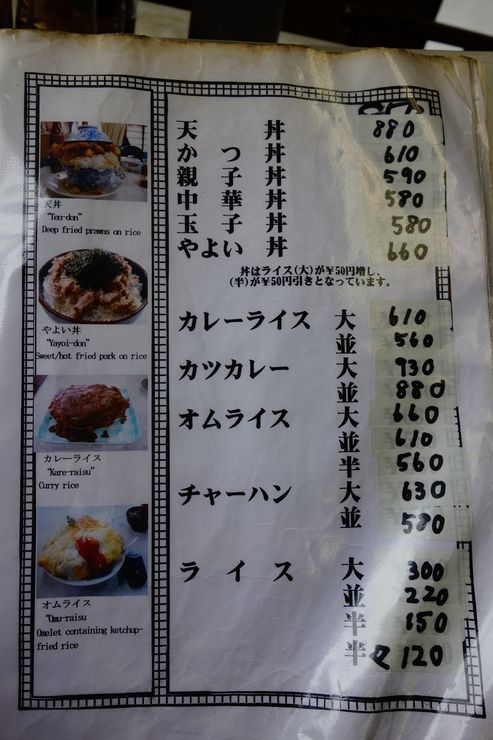 天丼
"Ten-don"
Deep fried prawns on rice
やよい丼
"Yayoi-don"
Sweet/hot fried pork on rice
カレーライス
"Kare-raisu"
Curry rice
オムライス
"Omu-raisu
Omelet containing ketchup-
fried rice
天丼 880
かつ丼 610
親子丼 590
中華丼 580
玉子丼 580
やよい丼 660
丼はライス(大)が¥50円増し、
(半)が¥50円引きとなっています。
カレーライス 大 610
並 560
カツカレー 大 930
並 880
オムライス 大 660
並 610
半 560
チャーハン 大 630
並 580
ライス 大 300
並 220
半 150
半 120